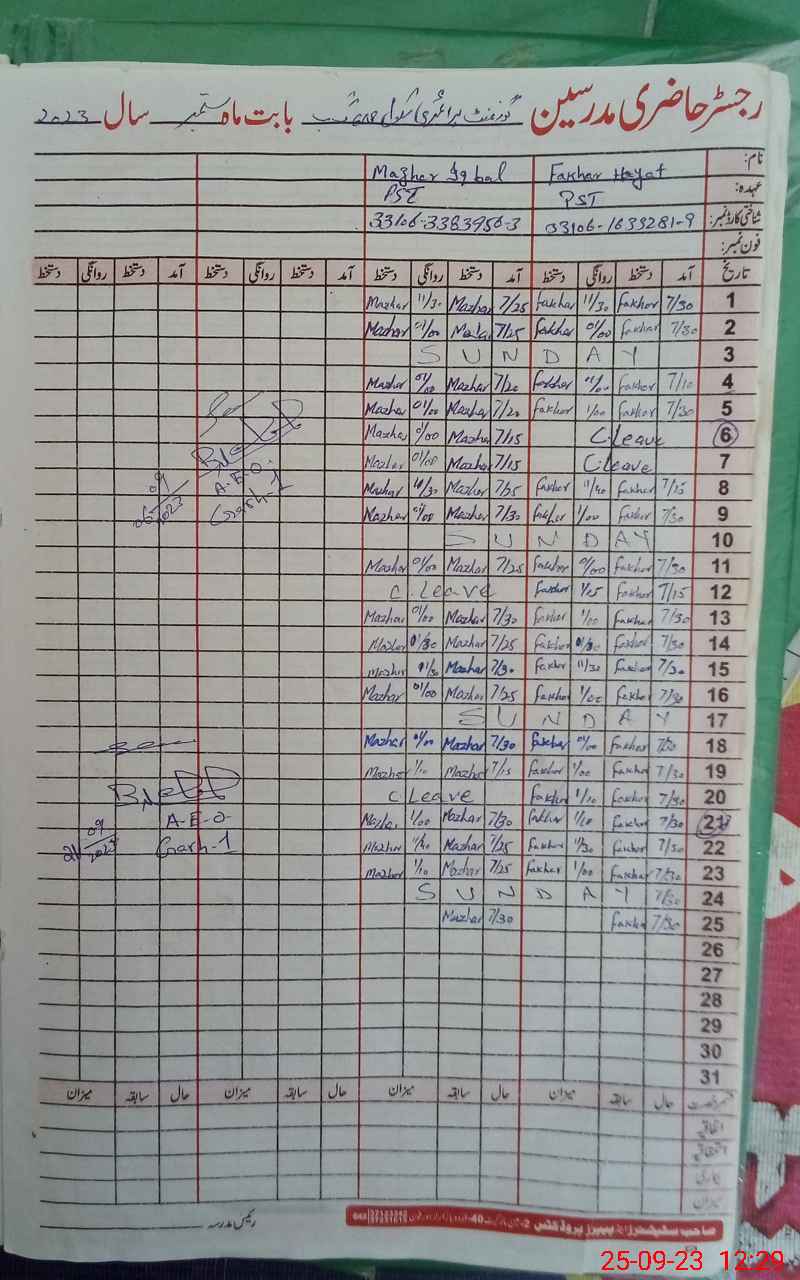 رجسٹر حاضری مدرسین گورنمنٹ پرائمری سکول بابت ماہ ستمبر سال 2023
نام: Fakhar Hayat Mazhar Iqbal
عہدہ: PST PST
شناختی کارڈ نمبر: 33106-3383956-3
فون نمبر:
تاریخ آمد دستخط روانگی دستخط آمد دستخط روانگی دستخط آمد دستخط روانگی دستخط آمد دستخط روانگی دستخط
Mazhar 11/30 Mazhar 7/25 Fakhar 11/30 Fakhar 7/30 1
Mazhar 01/00 Mazhar 7/25 Fakhar 01/00 Fakhar 7/30 2
S U N D A Y 3
Mazhar 01/00 Mazhar 7/20 Fakhar 01/00 Fakhar 7/10 4
Mazhar 01/00 Mazhar 7/20 Fakhar 1/00 Fakhar 7/30 5
Mazhar 1/00 Mazhar 7/15 C.Leave 6
Mazhar 01/00 Mazhar 7/15 C.Leave 7
Mazhar Mazhar 7/25 Fakhar Fakhar 7/15 8
Mazhar 01/00 Mazhar 7/30 Fakhar 1/00 Fakhar 7/30 9
S U N D A Y 10
Mazhar 01/00 Mazhar 7/25 Fakhar 01/00 Fakhar 7/30 11
C.Leave Fakhar 1/15 Fakhar 7/15 12
Mazhar 01/00 Mazhar 7/30 Fakhar 1/00 Fakhar 7/30 13
Mazhar 01/30 Mazhar 7/25 Fakhar 01/30 Fakhar 7/30 14
Mazhar Mazhar 7/30 Fakhar 11/30 Fakhar 7/30 15
Mazhar 01/00 Mazhar 7/25 Fakhar 1/00 Fakhar 7/30 16
S U N D A Y 17
Mazhar 01/00 Mazhar 7/30 Fakhar 01/00 Fakhar 18
Mazhar 1/10 Mazhar 7/15 Fakhar 1/00 Fakhar 7/30 19
C Leave Fakhar 1/10 Fakhar 7/30 20
Mazhar 1/00 Mazhar 7/30 Fakhar 1/10 Fakhar 7/30 21
Mazhar Mazhar 7/25 Fakhar Fakhar 7/30 22
Mazhar 1/10 Mazhar 7/25 Fakhar 1/00 Fakhar 7/30 23
S U N D A Y 7/30 24
Mazhar 7/30 Fakhar 7/30 25
26
27
28
29
30
31
A.E.O.
Garh-1
06/09/2023
A.E.O.
Garh-1
21/09/2023
حال سابقہ میزان حال سابقہ میزان حال سابقہ میزان حال سابقہ میزان
اتفاقیہ
استحقاقیہ
بیماری
میزان
رئیس مدرسہ
25-09-23 12:29